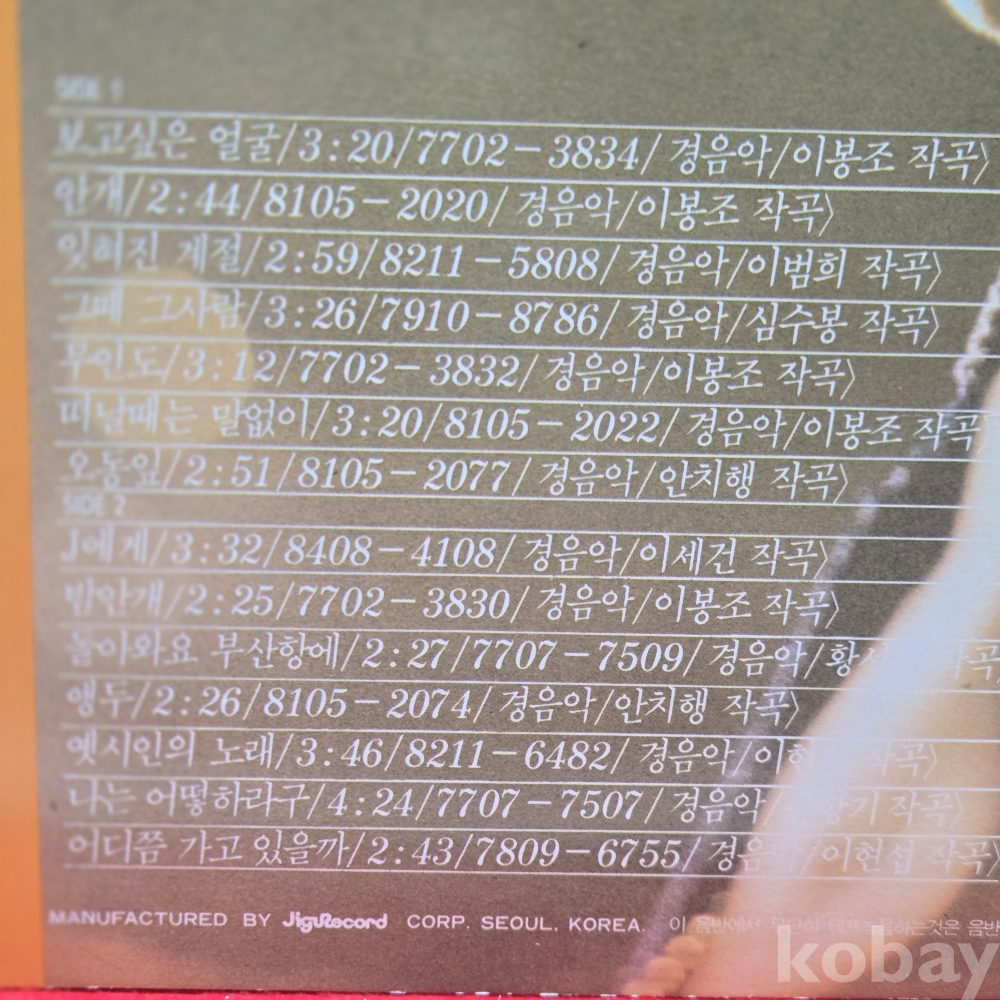 SIDE 1
보고싶은 얼굴/3:20/7702-3834/경음악/이봉조 작곡〉
안개/2:44/8105-2020/경음악/이봉조 작곡〉
잊혀진 계절/2:59/8211-5808/경음악/이범희 작곡〉
그때 그사람/3:26/7910-8786/경음악/심수봉 작곡〉
무인도/3:12/7702-3832/경음악/이봉조 작곡〉
떠날때는 말없이/3:20/8105-2022/경음악/이봉조 작곡
오동잎/2:51/8105-2077/경음악/안치행 작곡〉
SIDE 2
J에게/3:32/8408-4108/경음악/이세건 작곡〉
밤안개/2:25/7702-3830/경음악/이봉조 작곡〉
돌아와요 부산항에/2:27/7707-7509/경음악/황 작곡
앵두/2:26/8105-2074/경음악/안치행 작곡〉
옛시인의 노래/3:46/8211-6482/경음악/이현 작곡〉
나는 어떻하라구/4:24/7707-7507/경음악 작곡〉
어디쯤 가고 있을까/2:43/7809-6755/경음악/이현섭 작곡〉
MANUFACTURED BY JiguRecord CORP. SEOUL, KOREA. 이 음반에서 는것은 음반
kobay